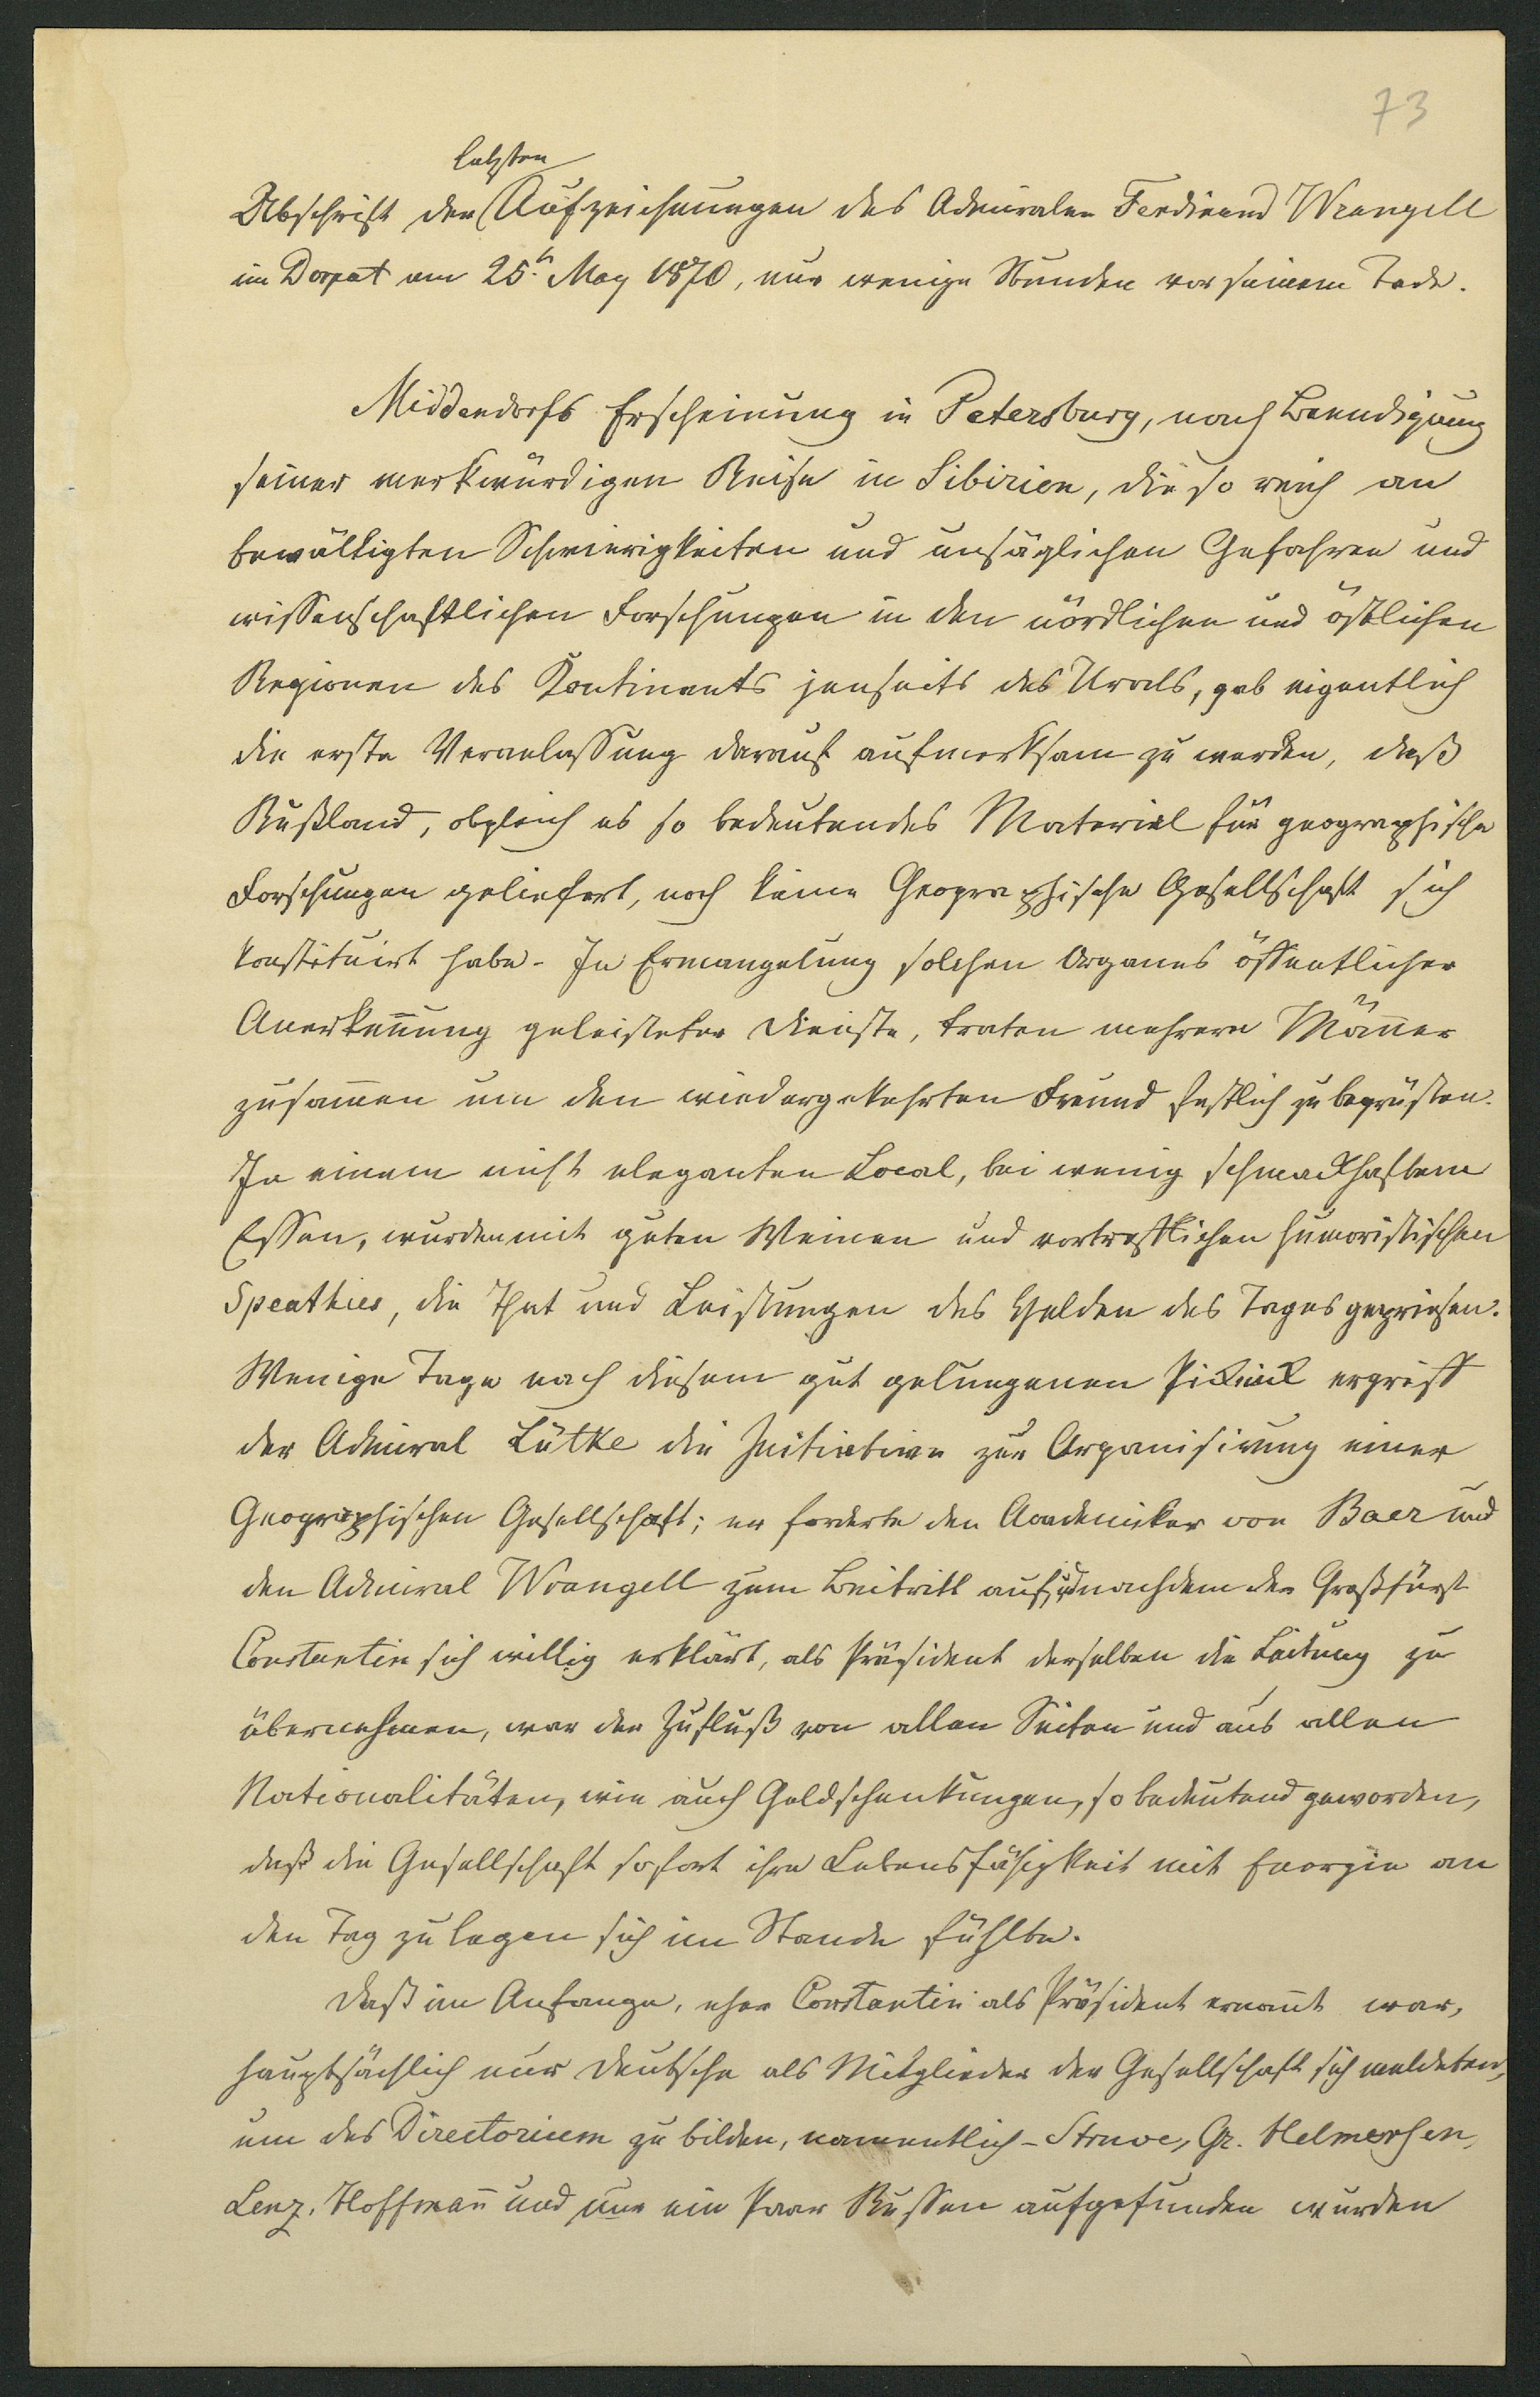 73
letzten
Abschrift der Aufzeichnungen des Admiralen Ferdinand Wrangell
in Dorpat am 25.ⁿ May 1870, nur wenige Stunden vor seinem Tode.
Middendorfs Erscheinung in Petersburg, nach Beendigung
seiner merkwürdigen Reise in Sibirien, die so reich an
bewältigten Schwierigkeiten und unsäglichen Gefahren und
wissenschaftlichen Forschungen in den nördlichen und östlichen
Regionen des Kontinents jenseits des Urals, gab eigentlich
die erste Veranlassung darauf aufmerksam zu werden, daß
Rußland, obgleich es so bedeutendes Material für geographische
Forschungen geliefert, noch keine Geographische Gesellschaft sich
konstituirt habe. In Ermangelung solchen Organes öffentlicher
Anerkeñung geleisteter Dienste, traten mehrere Mäñer
zusam̃en um den wiedergekehrten Freund festlich zu begrüßen.
In einem nicht eleganten Local, bei wenig schmackhaftem
Essen, wurden mit guten Weinen und vortrefflichen humoristischen
Speathies, die That und Leistungen des Helden des Tages gepriesen.
Wenige Tage nach diesem gut gelungenen Picknick ergriff
der Admiral Lütke die Initiative zur Organisirung einer
Geographischen Gesellschaft; er forderte den Academiker von Baer und
den Admiral Wrangell zum Beitritt auf, und nachdem der Großfürst
Constantin sich willig erklärt, als Präsident derselben die Leitung zu
übernehmen, war der Zufluß von allen Seiten und aus allen
Nationalitäten, wie auch Geldschenkungen, so bedeutend geworden,
daß die Gesellschaft sofort ihre Lebensfähigkeit mit Energie an
den Tag zu legen sich im Stande fühlte.
Daß im Anfange, eher Constantin als Präsident ernañt war,
hauptsächlich nur Deutsche als Mitglieder der Gesellschaft sich meldeten,
um das Directorium zu bilden, namentlich - Struve, Gr. Helmersen,
Lenz, Hoffmañ und nur ein Paar Russen aufgefunden wurden